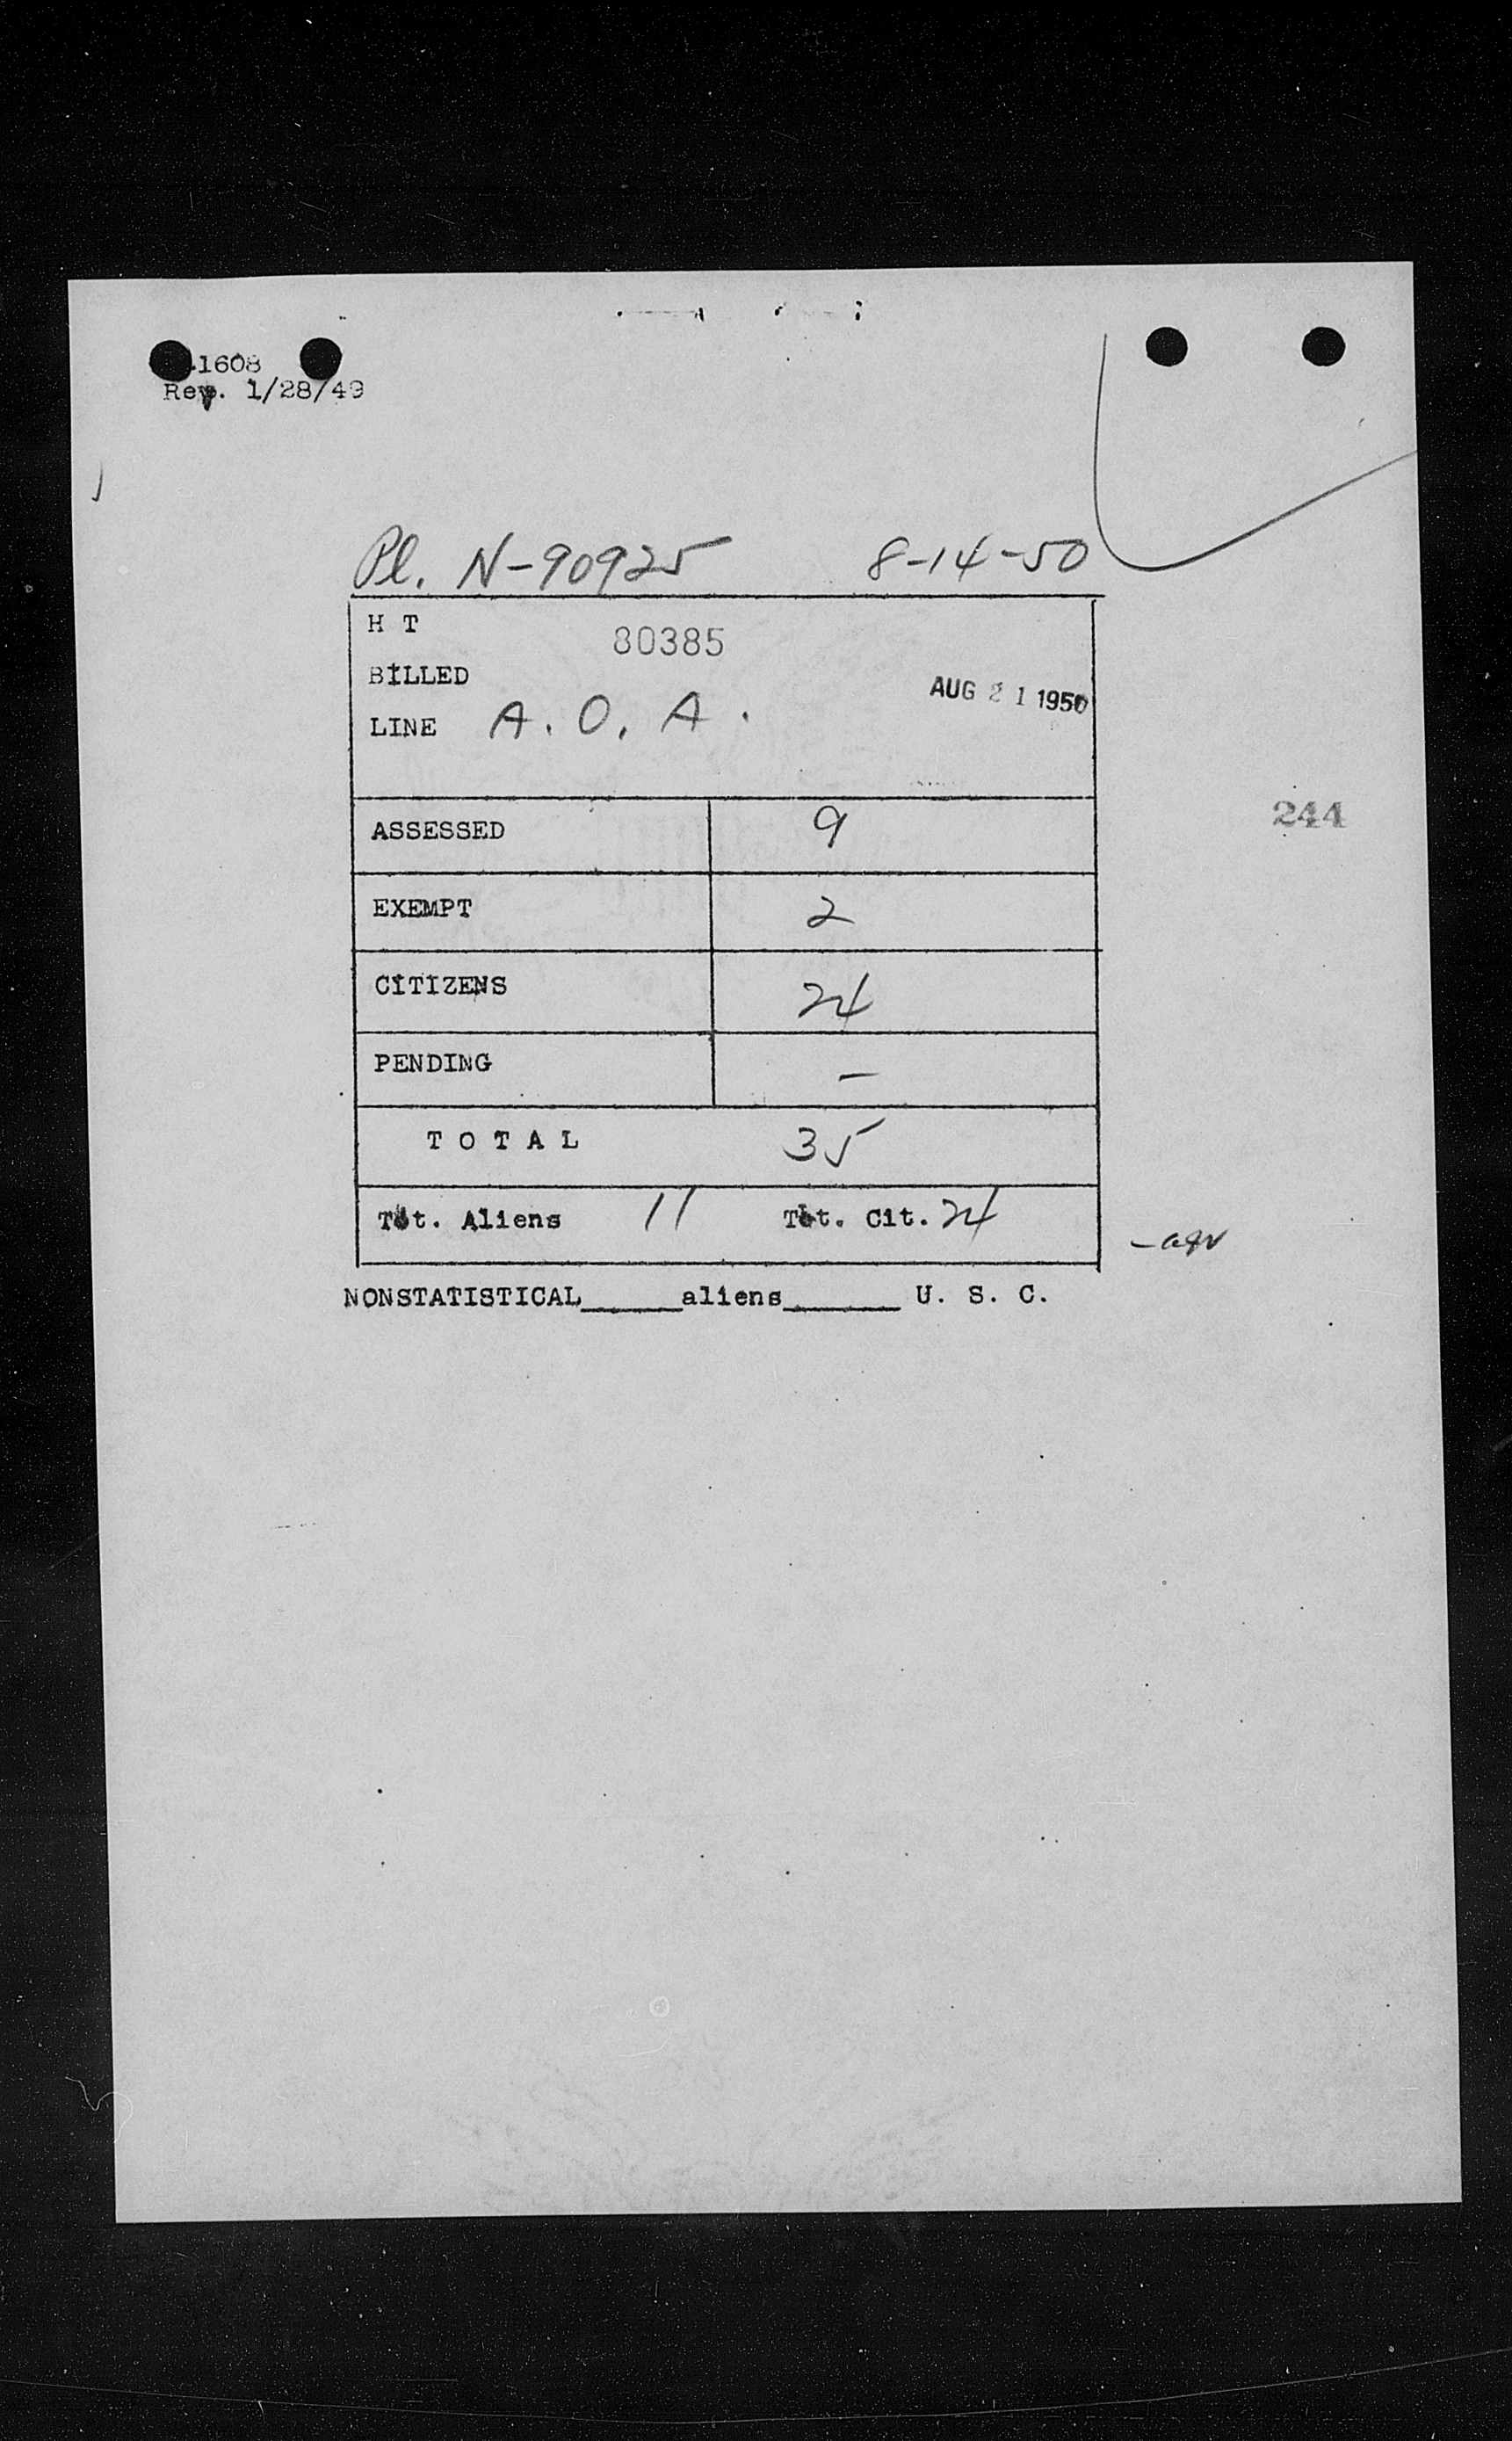 1608
Rev. 1/28/49
Pl. N-90925 8-14-50
H T
80385
BILLED
AUG 21 1950
LINE A. O. A.
ASSESSED 9
244
EXEMPT 2
CITIZENS 24
PENDING –
T O T A L 35
Tot. Aliens 11 Tot. Cit. 24
NONSTATISTICAL_____aliens______ U. S. C.